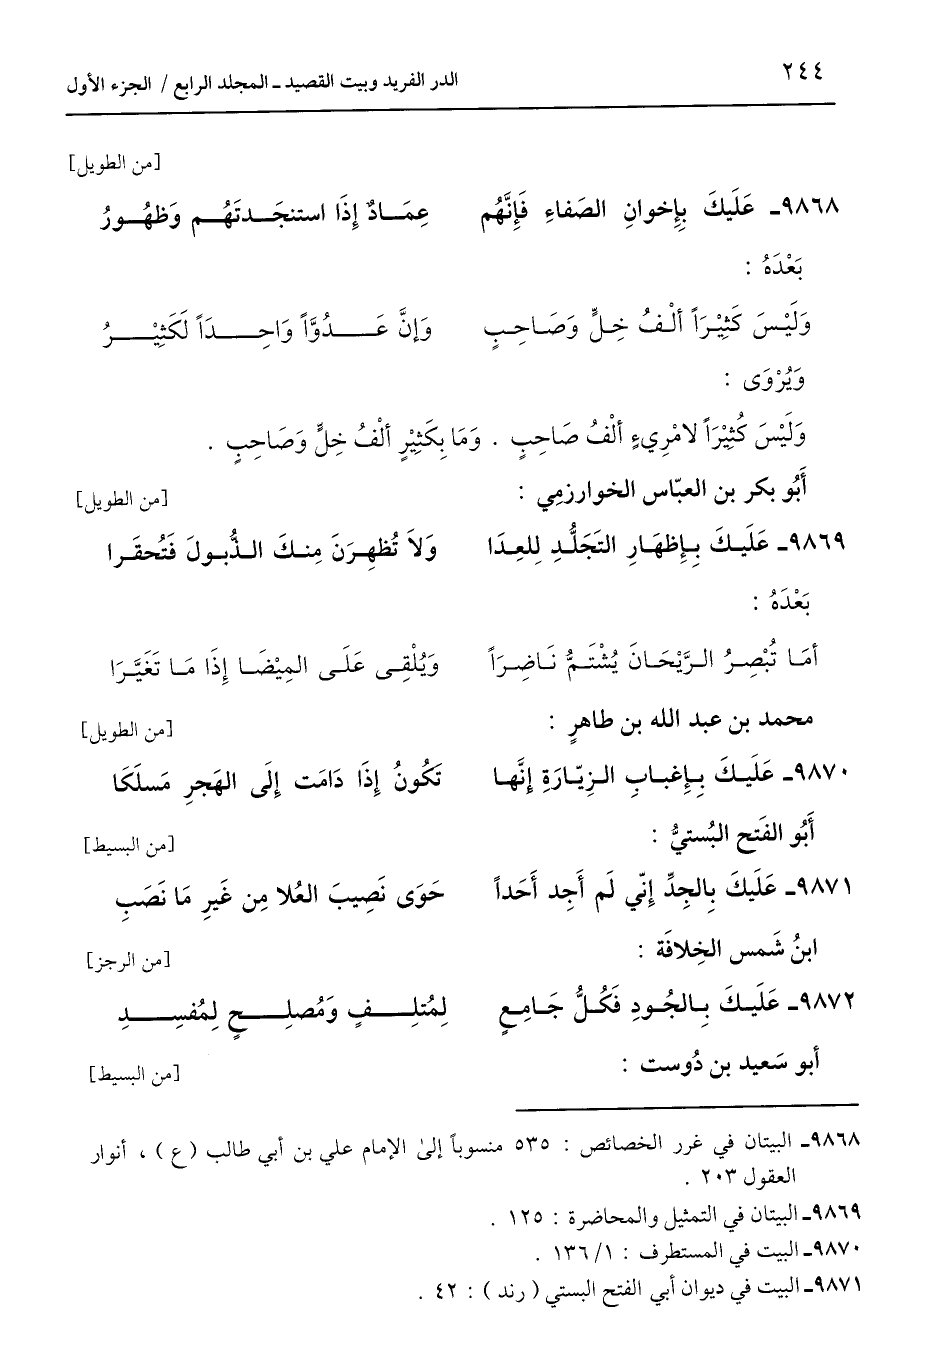 ٢٤٤
الدر الفريد وبيت القصيد ـ المجلد الرابع / الجزء الأول
[من الطويل]
٩٨٦٨ـ عَلَيكَ بِإخوانِ الصَفاءِ فَإنَّهُم عِمَادٌ إذَا استنجَدتَهُم وَظهُورُ
بَعْدَهُ :
وَلَيْسَ كَثيْرَاً ألْفُ خِلٍّ وَصَاحِبٍ وَإنَّ عَدُوَّاً وَاحِدَاً لَكَثِيْرُ
وَيُرْوَى :
وَلَيْسَ كُثيْرَاً لامْرِيءٍ ألْفُ صَاحِبٍ . وَمَا بِكَثِيْرٍ ألْفُ خِلٍّ وَصَاحِبٍ .
أَبُو بكر بن العبّاس الخوارزمِي :
[من الطويل]
٩٨٦٩ـ عَلَيكَ بِإظهَارِ التَجَلُّدِ لِلعِدَا وَلاَ تُظهِرَنَ مِنكَ الذُّبولَ فَتُحقَرا
بَعْدَهُ :
أمَا تُبْصِرُ الرَّيْحَانَ يُشْتَمُّ نَاضِرَاً وَيُلْقِى عَلَى المِيْضَا إذَا مَا تَغَيَّرَا
محمد بن عبد الله بن طاهرٍ :
[من الطويل]
٩٨٧٠ـ عَلَيكَ بِإغبابِ الزِيّارَةِ إنَّها تَكُونُ إذَا دَامَت إلَى الهَجرِ مَسلَكَا
أَبُو الفَتح البُستيُّ :
[من البسيط]
٩٨٧١ـ عَلَيكَ بِالجِدِّ إنّي لَم أجِد أحَداً حَوَى نَصِيبَ العُلا مِن غَيرِ مَا نَصَبِ
ابنُ شَمس الخِلافَة :
[من الرجز]
٩٨٧٢ـ عَلَيكَ بِالجُودِ فَكُلُّ جَامِعٍ لِمُتلِفٍ وَمُصلِحٍ لِمُفسِدِ
أبو سَعيد بن دُوست :
[من البسيط]
٩٨٦٨ـ البيتان في غرر الخصائص : ٥٣٥ منسوباً إلىٰ الإمام علي بن أبي طالب (ع) ، أنوار
العقول ٢٠٣ .
٩٨٦٩ـ البيتان في التمثيل والمحاضرة : ١٢٥ .
٩٨٧٠ـ البيت في المستطرف : ١/ ١٣٦ .
٩٨٧١ـ البيت في ديوان أبي الفتح البستي (رند) : ٤٢ .